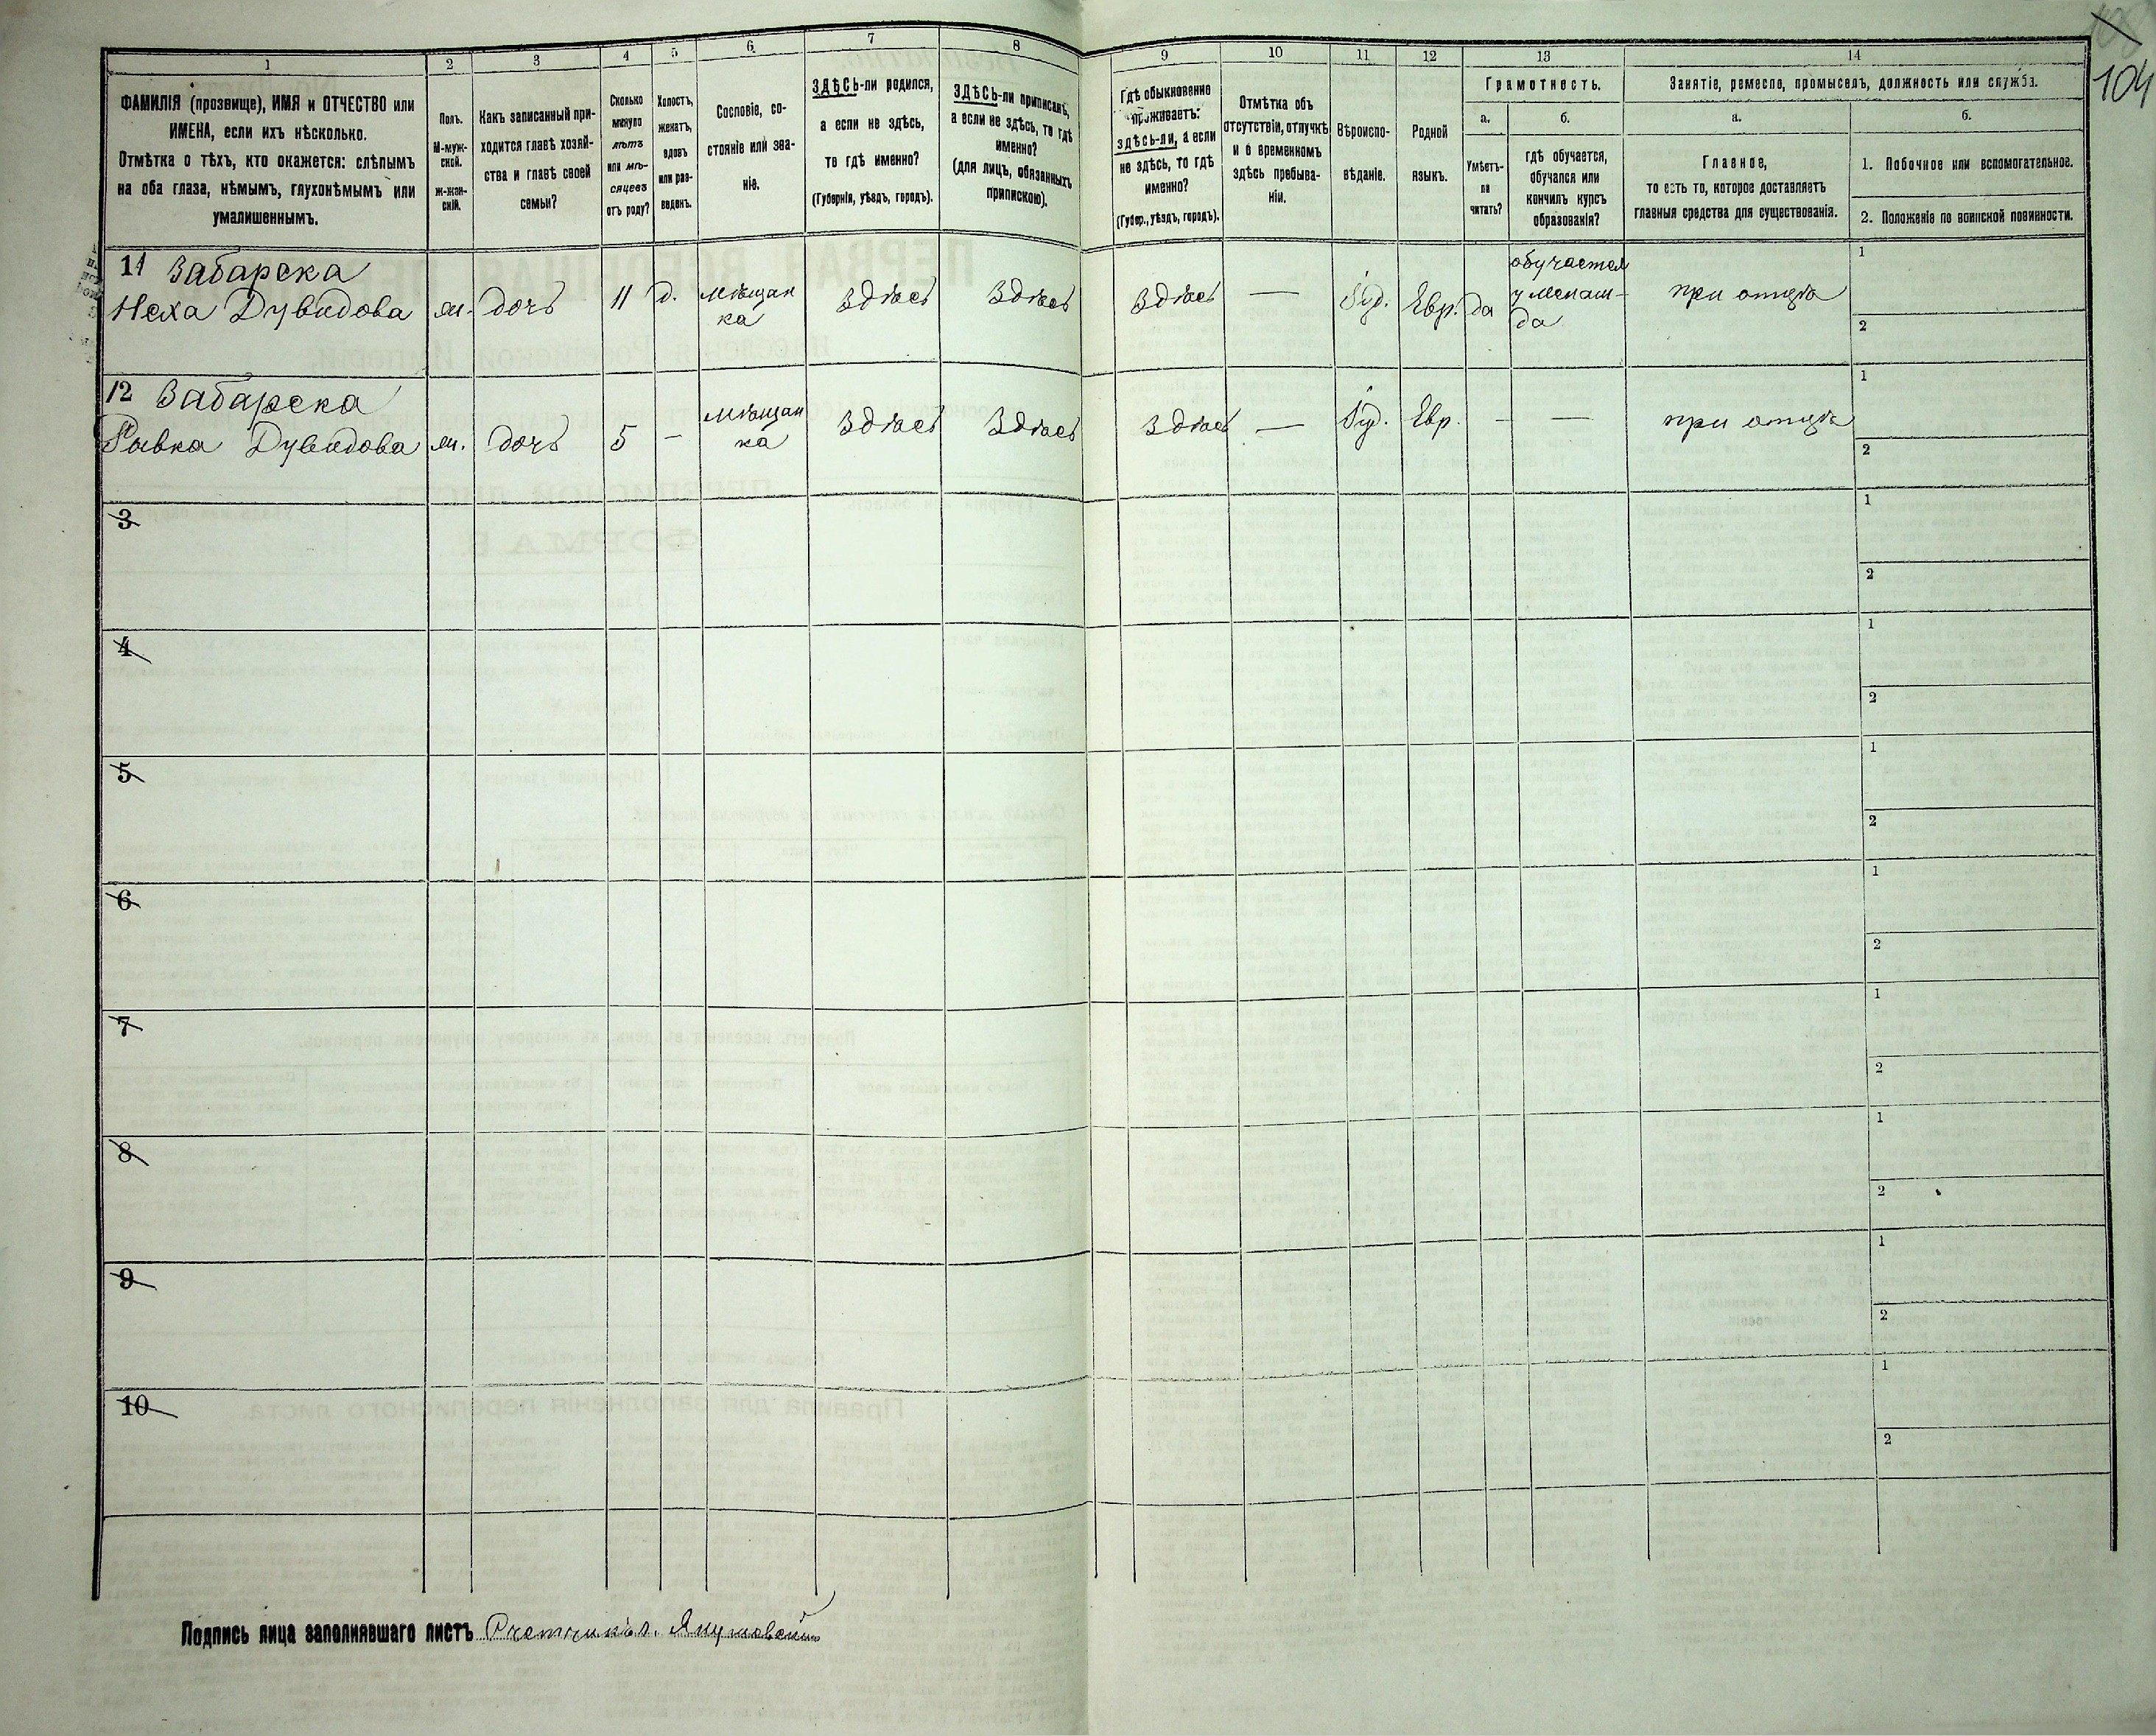 104
1 2 3 4 5 6 7 8 9 10 11 12 13 14
ФАМИЛІЯ (прозвище), ИМЯ и ОТЧЕСТВО или
ИМЕНА, если ихъ нѣсколько.
Отмѣтка о тѣхъ, кто окажется: слѣпымъ
на оба глаза, нѣмымъ, глухонѣмымъ или
умалишеннымъ.
Полъ.
М-муж-
ской.
ж-жен-
скій.
Какъ записанный при-
ходится главѣ хозяй-
ства и главѣ своей
семьи?
Сколько
минуло
лѣтъ
или мѣ-
сяцевъ
отъ роду?
Холостъ,
женатъ,
вдовъ
или раз-
веденъ.
Сословіе, со-
стояніе или зва-
ніе.
ЗДѢСЬ-ли родился,
а если не здѣсь,
то гдѣ именно?
(Губернія, уѣздъ, городъ).
ЗДѢСЬ-ли приписанъ,
а если не здѣсь, то гдѣ
именно?
(для лицъ, обязанныхъ
припискою).
Гдѣ обыкновенно
проживаетъ:
здѣсь-ли, а если
не здѣсь, то гдѣ
именно?
(Губер., уѣздъ, городъ).
Отмѣтка объ
отсутствіи, отлучкѣ
и о временномъ
здѣсь пребыва-
ніи.
Вѣроиспо-
вѣданіе.
Родной
языкъ.
Грамотность.
а.
Умѣетъ-
ли
читать?
б.
гдѣ обучается,
обучался или
кончилъ курсъ
образованія?
Занятіе, ремесло, промыселъ, должность или служба.
а.
Главное,
то есть то, которое доставляетъ
главныя средства для существованія.
б.
1. Побочное или вспомогательное.
2. Положеніе по воинской повинности.
11 Забарска
Неха Дувидова ж. дочь 11 д. Мѣщан
ка
здѣсь здѣсь здѣсь — Іуд. Евр. да
обучается
у
да
при отцѣ
1
2
12 Забарска
Рывка Дувидова ж. дочь 5 — Мѣщан
ка
здѣсь здѣсь здѣсь — Іуд. Евр. - — при отцѣ
1
2
3
1
2
4
1
2
5
1
2
6
1
2
7
1
2
8
1
2
9
1
2
10
1
2
Подпись лица заполнявшаго листъ Счетчикъ